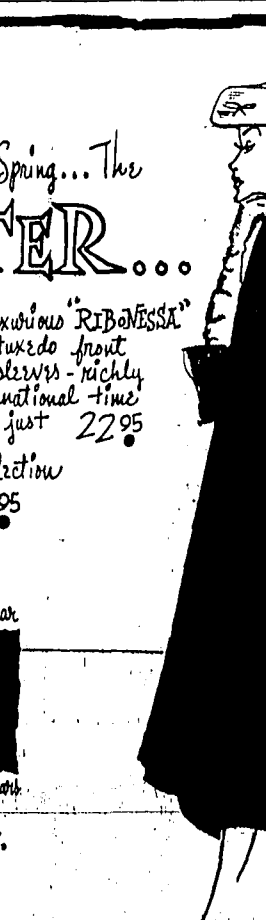 Spring... The
TER...
xurious "RIBONESSA"
tuxedo front
sleeves - richly
national time
just 22.95
lection
95
ar
ars